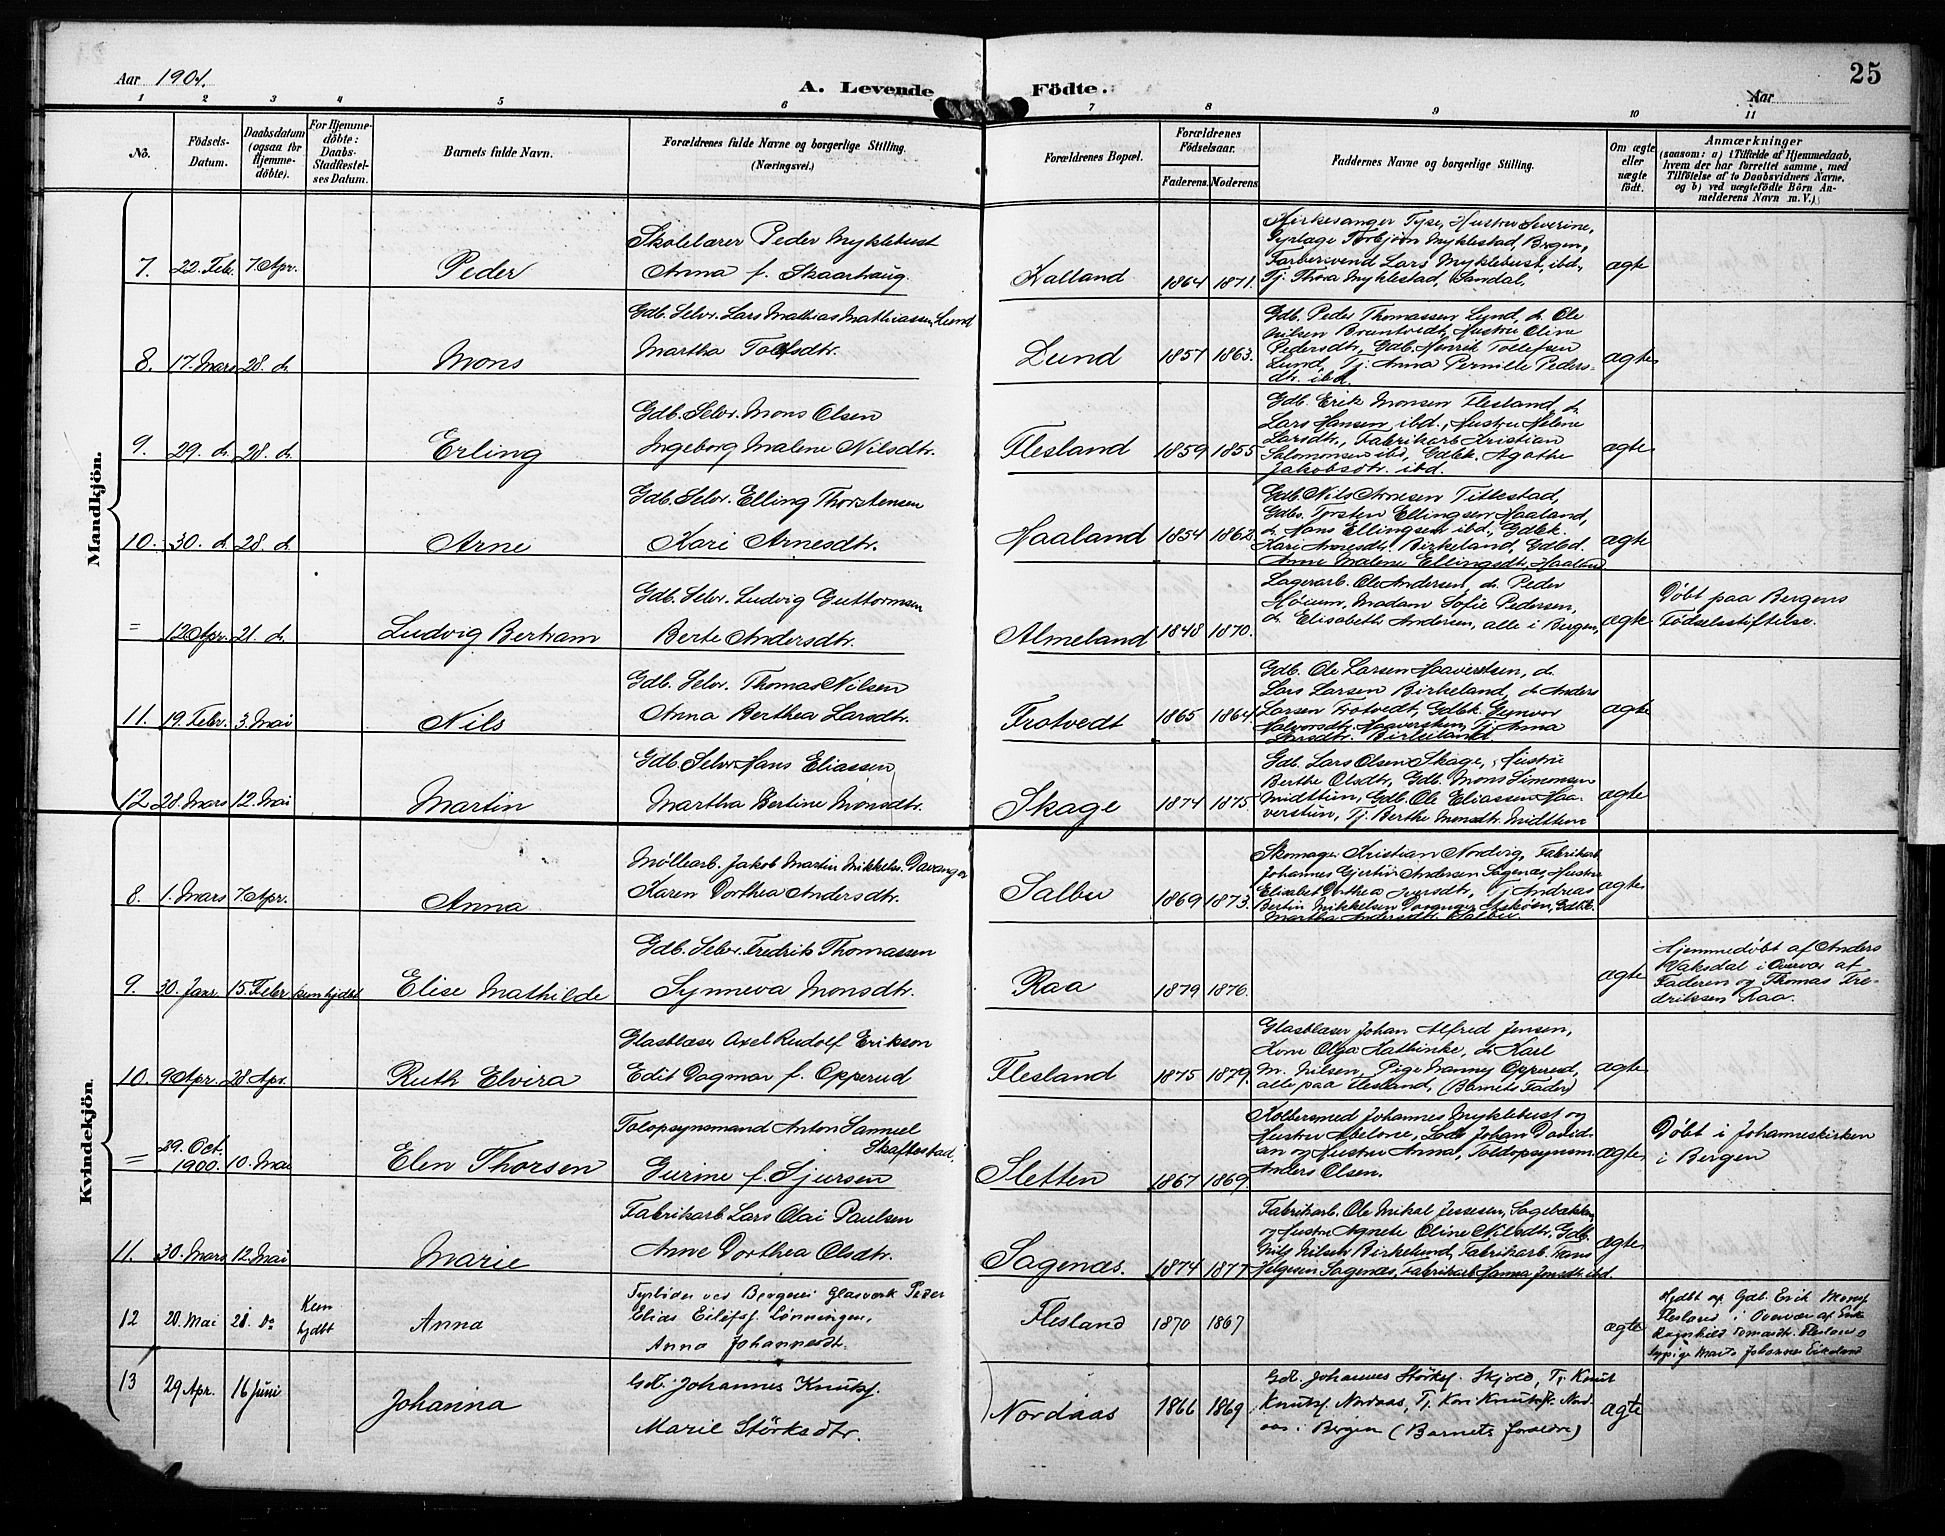 Aar 1901.
A. Levende Födte.
25
Aar
1 2 3 4 5 6 7 8 9 10 11
No.
Födsels-Datum.
Daabsdatum (ogsaa for Hjemme-döbte).
For Hjemme-döbte: Daabs-Stadfæstel-ses Datum.
Barnets fulde Navn.
Forældrenes fulde Navne og borgerlige Stilling. (Næringsvei.)
Forældrenes Bopæl.
Forældrenes Födselsaar.
Faderens. Moderens.
Faddernes Navne og borgerlige Stilling.
Om ægte eller uægte födt.
Anmærkninger
(saasom: a) i Tilfælde af Hjemmedaab,
hvem der har forrettet samme, med
Tilföielse af to Daabsvidners Navne,
og b) ved uægtefödte Börn An-
melderens Navn m. V.)
Mandkjön.
7. 22. Feb. 7. Apr. Peder
Skolelærer Peder Myklebust
Anna f. Skaarhaug.
Kalland 1864 1871.
Kirkesanger Tyse, Hustru Severine,
Torbjörn Myklestad, Bergen,
Farbersvend Lars Myklebust, ibd.,
Tj. Thora Myklestad, Sandal,
ægte
8. 17. Mars 28. d. Mons
Gdb. Selv. Lars Mathias Mathiassen Lund
Martha Tolfsdtr.
Lund 1851 1863.
Gdb. Peder Thomassen Lund, d. Ole
Nilsen Brantvedt, Hustru Oline
Pedersdtr, Gdb. Henrik Tollefsen
Lund, Tj. Anna Pernille Peders-
dtr. ibd.
ægte
9. 29. d. 28. d. Erling
Gdb. Selv. Mons Olsen
Ingeborg Malene Nilsdtr.
Flesland 1859 1855
Gdb. Erik Monsen Flesland, d.
Lars Hansen ibd., Hustru Helene
Larsdtr., Fabrikarb. Kristian
Salomonsen ibd, Gdbk. Agathe
Jakobsdtr. ibd.
ægte
10. 30. d. 28. d. Arne
Gdb. Selv. Elling Thorstensen
Kari Arnesdtr.
Haaland 1854 1862.
Gdb. Nils Arnesen Tittestad,
Gdbs. Torsten Ellingsen Haaland,
d. Hans Ellingsen ibd., Gdbk.
Kari Arnesdtr. Birkeland, Gdbd.
Anne Malene Ellingsdtr, Haaland
ægte
= 12 Apr. 21. d. Ludvig Bertram
Gdb. Selv. Ludvig Guttormsen
Berte Andersdtr.
Almeland 1848 1870.
Lagerarb. Ole Andersen, d. Peder
Höium, Madam Sofie Pedersen,
d. Elisabeth Andersen, alle i Bergen,
ægte
Döbt paa Bergens
Födselsstiftelse.
11. 19. Febr. 3. Mai Nils
Gdb. Selv. Thomas Nilsen
Anna Berthea Larsdtr.
Trotvedt 1865 1864
Gdb. Ole Larsen Haaversten, d.
Lars Larsen Birkeland, d. Anders
Larsen Trotvedt, Gdbk. Gunvor
Halvorsdtr. Haaversten, Tj. Anna
Larsdtr. Birkeland
ægte
12 28. Mars 12. Mai Martin
Gdb. Selv. Hans Eliassen
Martha Bertine Monsdtr.
Skage 1874 1875.
Gdb. Lars Olsen Skage, Hustru
Berthe Olsdtr, Gdb. Mons Simonsen
Midttun, Gdb. Ole Eliassen Haa-
verstun, Tj. Berthe Monsdtr. Midttun
ægte
Kvindekjön.
8. 1. Mars 7. Apr. Anna
Möllearb. Jakob Martin Mikkelsen Davanger
Karen Dorthea Andersdtr.
Salbu 1869 1873.
Skomager Kristian Nordvig, Fabrikarb
Johannes Gjertin Andersen Sagenæs, Hustru
Elisabet Dorthea Iversdtr, Tj. Andreas
Bertin Mikkelsen Davanger Asköen, Gdbk.
Martha Andersdtr. Salbu
ægte
9. 30. Janr. 15. Febr. kun hjdbt Elise Mathilde
Gdb. Selv. Fredrik Thomassen
Synneva Monsdtr.
Raa 1879 1876.
ægte
Hjemmedöbt af Anders
Vaksdal i Overvær af
Faderen og Thomas Fre-
driksen Raa.
10. 9 Apr. 28 Apr. Ruth Elvira
Glasblæser Axel Rudolf Erikson
Edit Dagmar f. Opperud
Flesland 1875 1879.
Glasblæser Johan Alfred Jensen,
Kone Olga Hatbinke, d. Karl
M. Nilsen, Pige Nanny Opperud,
alle paa Flesland, (Barnets Fader)
ægte
= 29. Oct. 1900. 10. Mai Elen Thorsen
Toldopsynsmand Anton Samuel
Skaftestad,
Gurine f. Sjursen
Sletten 1867 1869.
Kobbersmed Johannes Myklebust og
Hustru Abelone, Lods Johan David-
sen og Hustru Anna, Toldopsynsm.
Anders Olsen.
ægte
Döbt i Johanneskirken
i Bergen
11. 30. Mars 12. Mai Marie
Fabrikarb. Lars Olai Paulsen
Anne Dorthea Olsdtr.
Sagenæs. 1874 1877
Fabrikarb. Ole Mikal Jensen, Sagebakken
og Hustru Agnete Oline Nilsdtr, Gdb.
Nils Nilsen Birkelund, Fabrikarb. Hans
Helgesen Sagenæs, Fabrikarb Hanna Jensdtr. ibd.
ægte
12 20. Mai 21. do Kun hjdbt Anna
Fyrböder ved Bergens Glasværk Peder
Elias Eilefsf. Lönningen,
Anna Johannesdtr.
Flesland 1870 1867
ægte
Hjdbt af Gdb. Erik Monsf.
Flesland i Overvær af Enke
Ragnhild Flesland og
Sypige Marta Johannes Eikeland
13 29 Apr. 16 Juni Johanna
Gdb. Johannes Knutsf.
Marie Störksdtr.
Nordaas 1866 1869
Gdb. Johannes Störksf. Skjold, Tj. Knut
Knutsf. Nordaas, Tj. Kari Knutsdtr. Nord-
aas i Bergen (Barnets forældre)
ægte